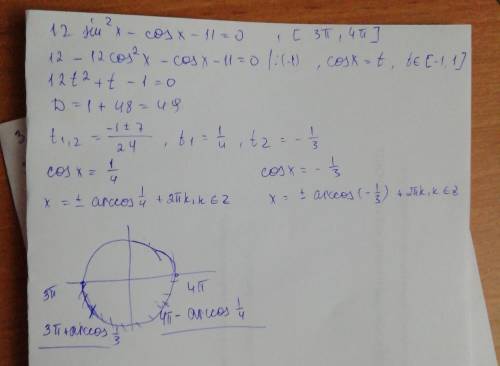 12 sin²x - cosx - 11 = 0 , [3π, 4π]
12 - 12cos²x - cosx - 11 = 0 |:(-1) , cosx = t, t∈[-1,1]
12t² + t - 1 = 0
D = 1 + 48 = 49
t₁,₂ = (-1 ± 7)/24 , t₁ = 1/4 , t₂ = - 1/3
cosx = 1/4 cosx = - 1/3
x = ± arccos 1/4 + 2πk, k∈Z x = ± arccos(-1/3) + 2πk, k∈Z
3π 4π
3π + arccos 1/3 4π - arccos 1/4